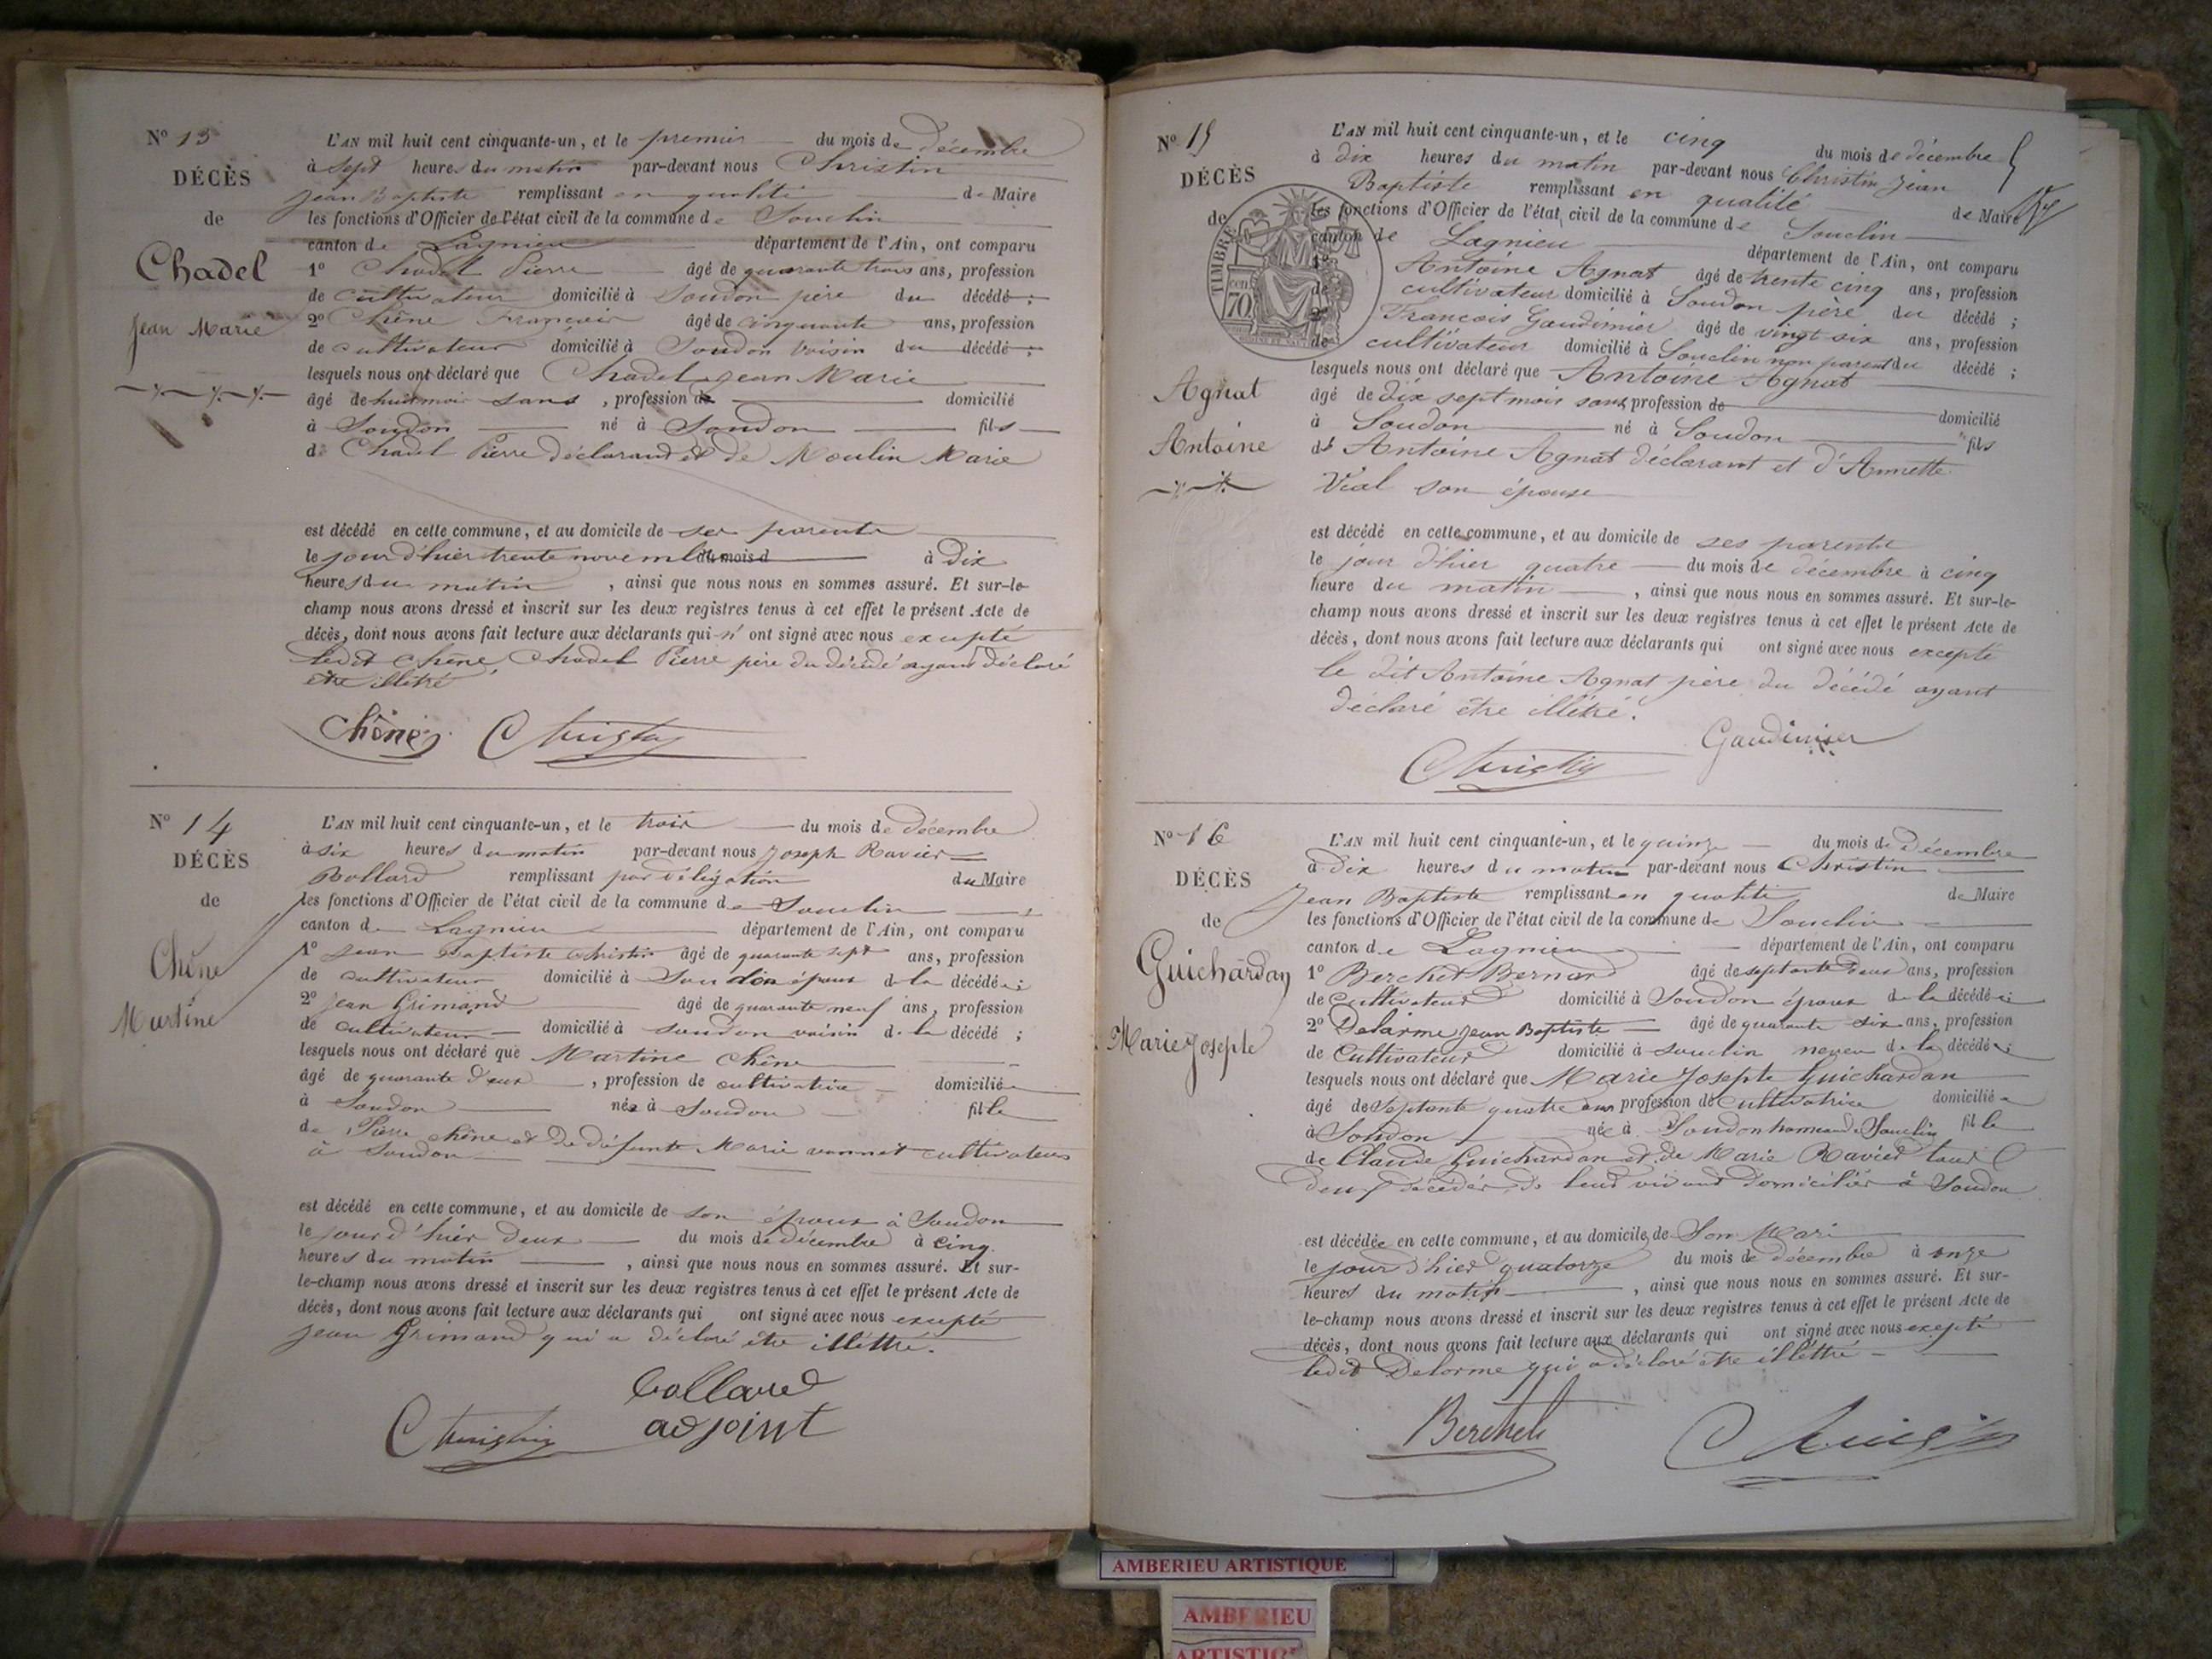 N° 13
DÉCÈS
de
Chadel
Jean Marie
L'AN mil huit cent cinquante-un, et le premier du mois de décembre
à sept heures du matin par-devant nous Christin
Jean Baptiste remplissant en qualité de Maire
les fonctions d'Officier de l'état civil de la commune de Souclin
canton de Lagnieu département de l'Ain, ont comparu
1° Chadel Pierre âgé de quarante trois ans, profession
de cultivateur domicilié à Soudon père du décédé ;
2° Chêne François âgé de cinquante ans, profession
de cultivateur domicilié à Soudon voisin du décédé ;
lesquels nous ont déclaré que Chadel Jean Marie
âgé de huit mois sans , profession de domicilié
à Soudon né à Soudon fils
de Chadel Pierre déclarant et de Moulin Marie
est décédé en cette commune, et au domicile de ses parents
le jour d'hier trente novembre du mois d à dix
heures du matin , ainsi que nous nous en sommes assuré. Et sur-le-
champ nous avons dressé et inscrit sur les deux registres tenus à cet effet le présent Acte de
décès, dont nous avons fait lecture aux déclarants qui n' ont signé avec nous excepté
ledit Chêne, Chadel Pierre père du décédé ayant déclaré
être illétré
Chêne Christin
N° 14
DÉCÈS
de
Chêne
Martine
L'AN mil huit cent cinquante-un, et le trois du mois de décembre
à six heures du matin par-devant nous Joseph Ravier
Bollard remplissant par délégation du Maire
les fonctions d'Officier de l'état civil de la commune de Souclin
canton de Lagnieu département de l'Ain, ont comparu
1° Jean Baptiste Christin âgé de quarante sept ans, profession
de cultivateur domicilié à Soudon époux de la décédée ;
2° Jean Grimand âgé de quarante neuf ans, profession
de cultivateur domicilié à soudon voisin de la décédé ;
lesquels nous ont déclaré que Martine Chêne
âgé de quarante deux , profession de cultivatrice domiciliée
à Soudon née à Soudon fille
de Pierre Chêne et de défunte Marie vannat cultivateurs
à Soudon
est décédé en cette commune, et au domicile de son époux à Soudon
le jour d'hier deux du mois de décembre à cinq
heures du matin , ainsi que nous nous en sommes assuré. Et sur-
le-champ nous avons dressé et inscrit sur les deux registres tenus à cet effet le présent Acte de
décès, dont nous avons fait lecture aux déclarants qui ont signé avec nous excepté
Jean Grimand qui a déclaré être illéttré.
Bollard
Christin adjoint
N° 15
DÉCÈS
de
TIMBRE
cen
70
Agnat
Antoine
L'AN mil huit cent cinquante-un, et le cinq du mois de décembre
à dix heures du matin par-devant nous Christin Jean
Baptiste remplissant en qualité de Maire
les fonctions d'Officier de l'état civil de la commune de Souclin
canton de Lagnieu département de l'Ain, ont comparu
1° Antoine Agnat âgé de trente cinq ans, profession
de cultivateur domicilié à Soudon père du décédé ;
2° François Gaudimier âgé de vingt-six ans, profession
de cultivateur domicilié à Souclin non parent du décédé ;
lesquels nous ont déclaré que Antoine Agnat
âgé de dix sept mois sans profession de domicilié
à Soudon né à Soudon fils
d' Antoine Agnat déclarant et d'Annette
Vial son épouse
est décédé en cette commune, et au domicile de ses parents
le jour d'hier quatre du mois de décembre à cinq
heure du matin , ainsi que nous nous en sommes assuré. Et sur-le-
champ nous avons dressé et inscrit sur les deux registres tenus à cet effet le présent Acte de
décès, dont nous avons fait lecture aux déclarants qui ont signé avec nous excepté
le dit Antoine Agnat père du décédé ayant
déclaré être illétré.
Gaudimier
Christin
N° 16
DÉCÈS
de
Guichardan
Marie Josephe
L'AN mil huit cent cinquante-un, et le quinze du mois de décembre
à dix heures du matin par-devant nous Christin
Jean Baptiste remplissant en qualité de Maire
les fonctions d'Officier de l'état civil de la commune de Souclin
canton de Lagnieu département de l'Ain, ont comparu
1° Berchet Bernard âgé de septante deux ans, profession
de cultivateur domicilié à Soudon époux de la décédée ;
2° Delarme Jean Baptiste âgé de quarante six ans, profession
de Cultivateur domicilié à souclin neveu de la décédée ;
lesquels nous ont déclaré que Marie Josephe Guichardan
âgé de septante quatre ans profession de cultivatrice domiciliée
à Soudon née à Soudon hameau de Souclin fille
de Claude Guichardan et de Marie Ravier tous
deux décédés de leur vivant domiciliés à Soudon
est décédée en cette commune, et au domicile de Son Mari
le jour d'hier quatorze du mois de décembre à onze
heures du matin , ainsi que nous nous en sommes assuré. Et sur-
le-champ nous avons dressé et inscrit sur les deux registres tenus à cet effet le présent Acte de
décès, dont nous avons fait lecture aux déclarants qui ont signé avec nous excepté
ledit Delorme qui a déclaré être illéttré
Berchet Christin
AMBERIEU ARTISTIQUE
AMBERIEU
ARTISTIQUE